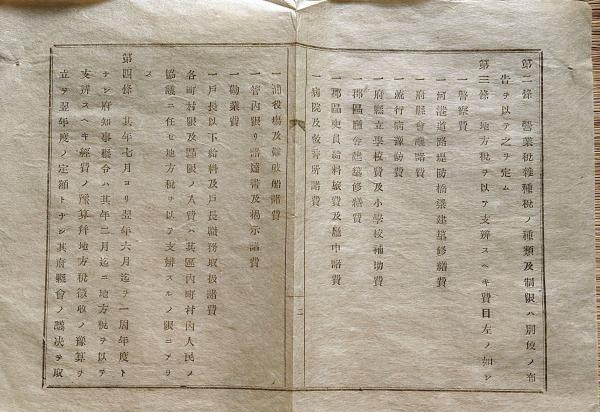 第二條　營業稅雜種稅ノ種類及制限ハ別段ノ布
告ヲ以テ之ヲ定ム
第三條　地方稅ヲ以テ支辨スヘキ費目左ノ如シ
一警察費
一河港道路堤防橋梁建築修繕費
一府縣會議諸費
一流行病豫防費
一府縣立學校費及小學校補助費
一郡區廳舍建築修繕費
一郡區吏員給料旅費及廳中諸費
一病院及敎育所諸費
二
一浦役塲及難破船諸費
一管內限リ諸達書及揭示諸費
一勸業費
一戶長以下給料及戶長職務取扱諸費
各町村限及區限ノ入費ハ其區內町村內人民ノ
協議ニ任セ地方稅ヲ以テ支辨スルノ限ニアラ
ス
第四條　其年七月ヨリ翌年六月迄ヲ一周年度ト
ナシ府知事縣令ハ其年二月迄ニ地方稅ヲ以テ
支辨スヘキ經費ノ豫算幷地方稅徵收ノ豫算ヲ
立テ翌年度ノ定額トナシ其府縣會ノ議決ヲ取